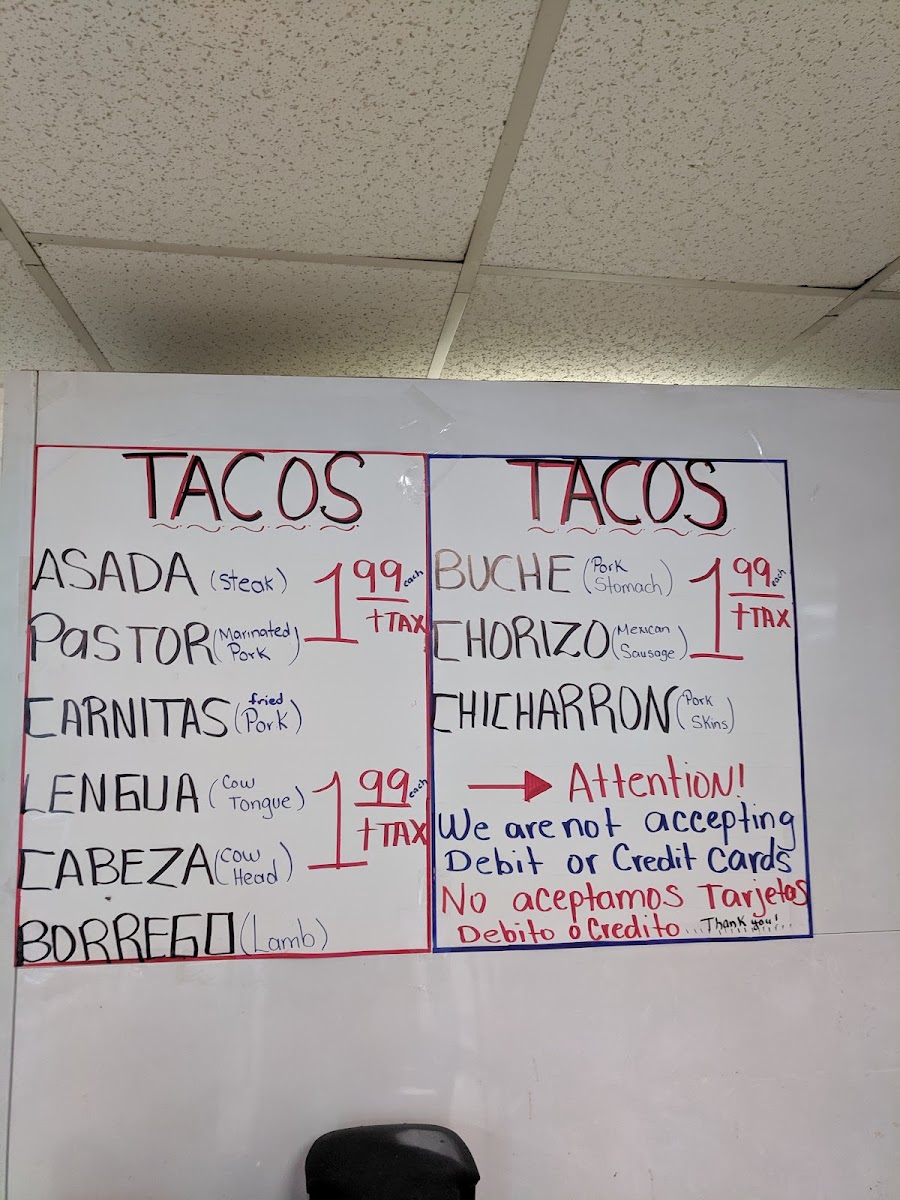 TACOS
ASADA (Steak) 1 99 each
PASTOR (Marinated Pork) + TAX
CARNITAS (fried Pork)
LENGUA (Cow Tongue) 1 99 each
CABEZA (Cow Head) + TAX
BORREGO (Lamb)
TACOS
BUCHE (Pork Stomach) 1 99 each
CHORIZO (Mexican Sausage) + TAX
CHICHARRON (Pork Skins)
→ Attention!
We are not accepting
Debit or Credit Cards
No aceptamos Tarjetas
Debito o Credito... Thank you!